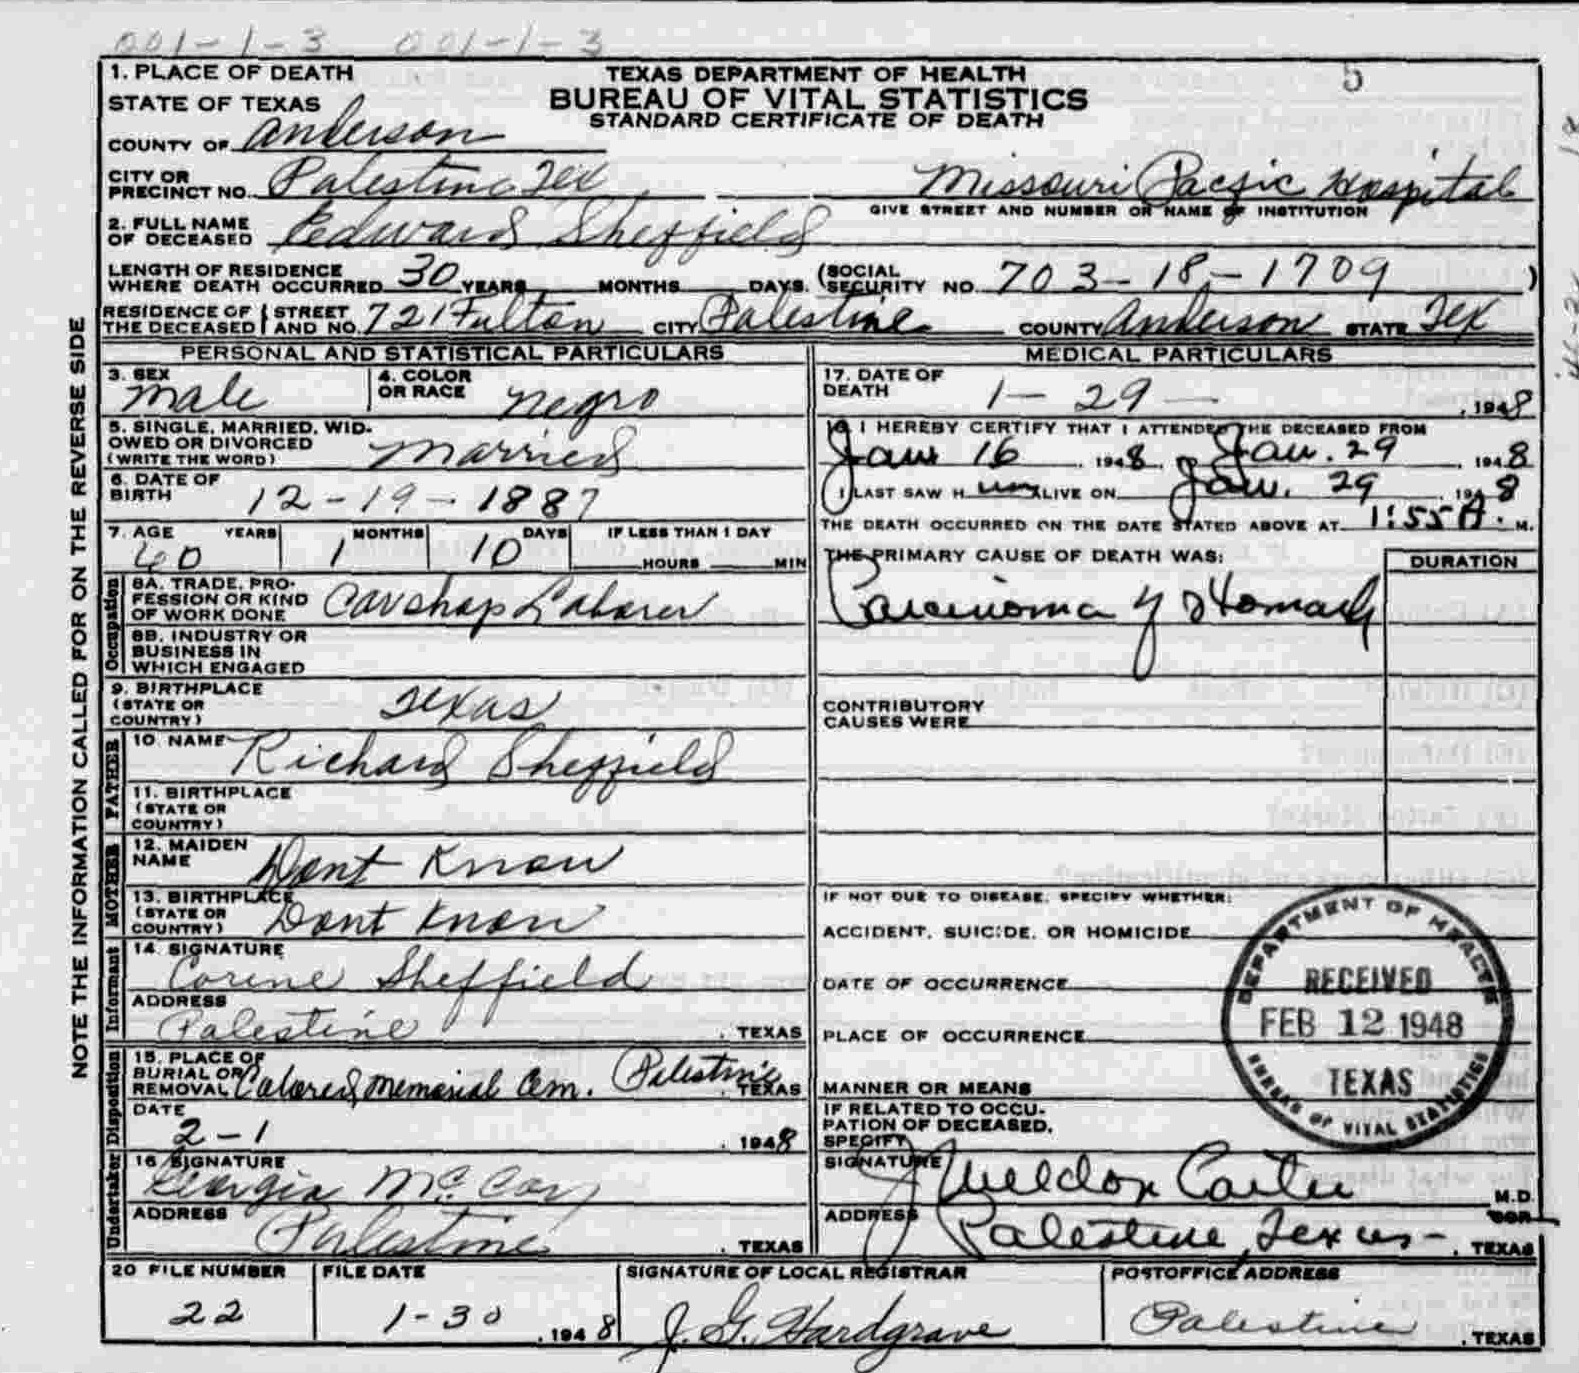 001-1-3 001-1-3
5
1. PLACE OF DEATH
STATE OF TEXAS
TEXAS DEPARTMENT OF HEALTH
BUREAU OF VITAL STATISTICS
STANDARD CERTIFICATE OF DEATH
COUNTY OF Anderson
CITY OR PRECINCT NO. Palestine Tex Missouri Pacific Hospital
GIVE STREET AND NUMBER OR NAME OF INSTITUTION
2. FULL NAME OF DECEASED Edward Sheffield
LENGTH OF RESIDENCE WHERE DEATH OCCURRED 30 YEARS MONTHS DAYS. (SOCIAL SECURITY NO. 703-18-1709)
RESIDENCE OF THE DECEASED STREET AND NO. 721 Fulton CITY Palestine COUNTY Anderson STATE Tex
NOTE THE INFORMATION CALLED FOR ON THE REVERSE SIDE
PERSONAL AND STATISTICAL PARTICULARS
3. SEX male
4. COLOR OR RACE negro
5. SINGLE, MARRIED, WIDOWED OR DIVORCED (WRITE THE WORD) married
6. DATE OF BIRTH 12-19-1887
7. AGE YEARS MONTHS DAYS IF LESS THAN 1 DAY
60 1 10 HOURS MIN
Occupation
8A. TRADE, PROFESSION OR KIND OF WORK DONE Carshop Laborer
8B. INDUSTRY OR BUSINESS IN WHICH ENGAGED
9. BIRTHPLACE (STATE OR COUNTRY) Texas
FATHER
10. NAME Richard Sheffield
11. BIRTHPLACE (STATE OR COUNTRY)
MOTHER
12. MAIDEN NAME Dont Know
13. BIRTHPLACE (STATE OR COUNTRY) Dont Know
Informant
14. SIGNATURE Corine Sheffield
ADDRESS Palestine, TEXAS
Disposition
15. PLACE OF BURIAL OR REMOVAL Colored Memorial Cem. Palestine, TEXAS
DATE 2-1, 1948
Undertaker
16 SIGNATURE Georgia McCoy
ADDRESS Palestine, TEXAS
MEDICAL PARTICULARS
17. DATE OF DEATH 1-29-, 1948
18. I HEREBY CERTIFY THAT I ATTENDED THE DECEASED FROM
Jan 16, 1948, Jan. 29, 1948
I LAST SAW H im ALIVE ON Jan. 29, 1948
THE DEATH OCCURRED ON THE DATE STATED ABOVE AT 1:55 A. M.
THE PRIMARY CAUSE OF DEATH WAS: DURATION
Carcinoma of stomach
CONTRIBUTORY CAUSES WERE
IF NOT DUE TO DISEASE, SPECIFY WHETHER:
ACCIDENT, SUICIDE, OR HOMICIDE
DATE OF OCCURRENCE
PLACE OF OCCURRENCE
MANNER OR MEANS
IF RELATED TO OCCUPATION OF DECEASED, SPECIFY
DEPARTMENT OF HEALTH
RECEIVED
FEB 12 1948
TEXAS
BUREAU OF VITAL STATISTICS
SIGNATURE J Weldon Carter M.D.
ADDRESS Palestine, Texas-, TEXAS
20 FILE NUMBER 22
FILE DATE 1-30, 1948
SIGNATURE OF LOCAL REGISTRAR J. G. Hardgrave
POSTOFFICE ADDRESS Palestine, TEXAS